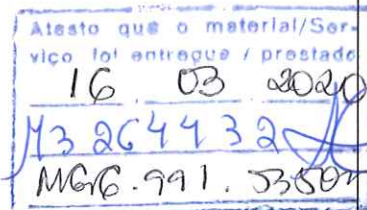 Atesto que o material/Ser-
viço foi entregue / prestado
16 03 2020
M3264432
MG6.991.